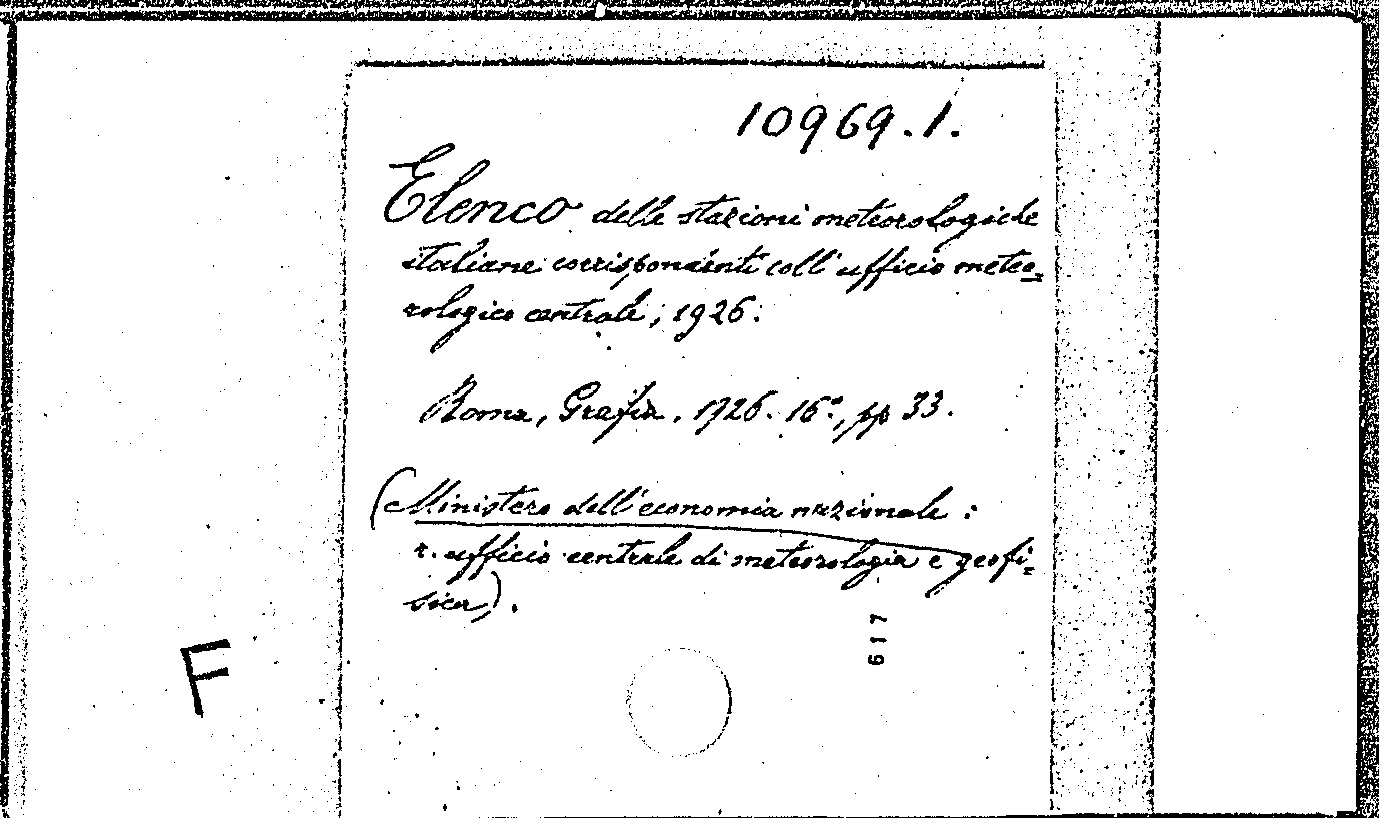 10969.1.
Elenco delle stazioni meteorologiche
italiane corrispondenti coll' ufficio meteo=
rologico centrale; 1926.
Roma, Grafia, 1926. 16°, pp 33.
(Ministero dell'economia nazionale:
r. ufficio centrale di meteorologia e geofi=
sica).
617
F